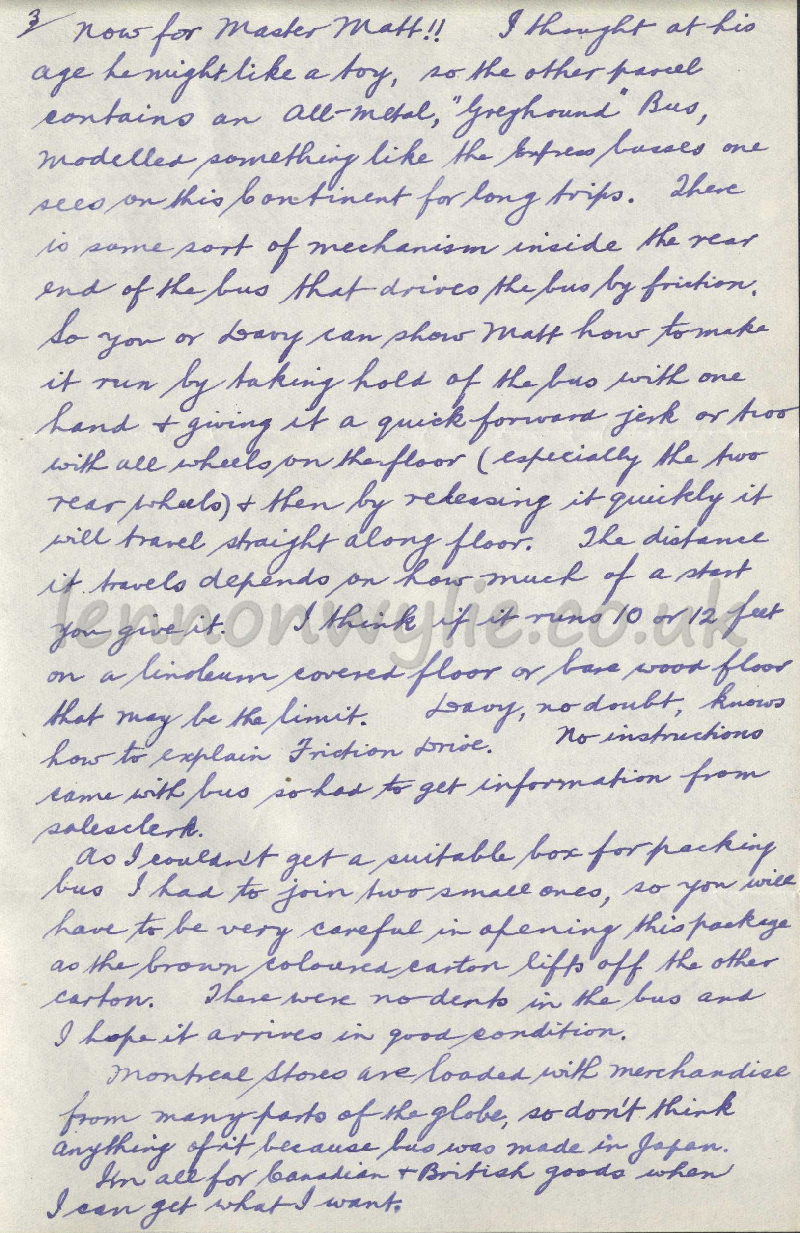 3/ Now for Master Matt!! I thought at his
age he might like a toy, so the other parcel
contains an All-Metal, "Greyhound" Bus,
modelled something like the Express busses one
sees on this Continent for long trips. There
is some sort of mechanism inside the rear
end of the bus that drives the bus by friction.
So you or Davy can show Matt how to make
it run by taking hold of the bus with one
hand + giving it a quick forward jerk or two
with all wheels on the floor (especially the two
rear wheels) + then by releasing it quickly it
will travel straight along floor. The distance
it travels depends on how much of a start
you give it. I think if it runs 10 or 12 feet
on a linoleum covered floor or bare wood floor
that may be the limit. Davy, no doubt, knows
how to explain Friction Drive. No instructions
came with bus so had to get information from
salesclerk.
As I couldn't get a suitable box for packing
bus I had to join two small ones, so you will
have to be very careful in opening this package
as the brown coloured carton lifts off the other
carton. There were no dents in the bus and
I hope it arrives in good condition.
Montreal Stores are loaded with merchandise
from many parts of the globe, so don't think
anything of it because bus was made in Japan.
I'm all for Canadian + British goods when
I can get what I want.
lennonwylie.co.uk